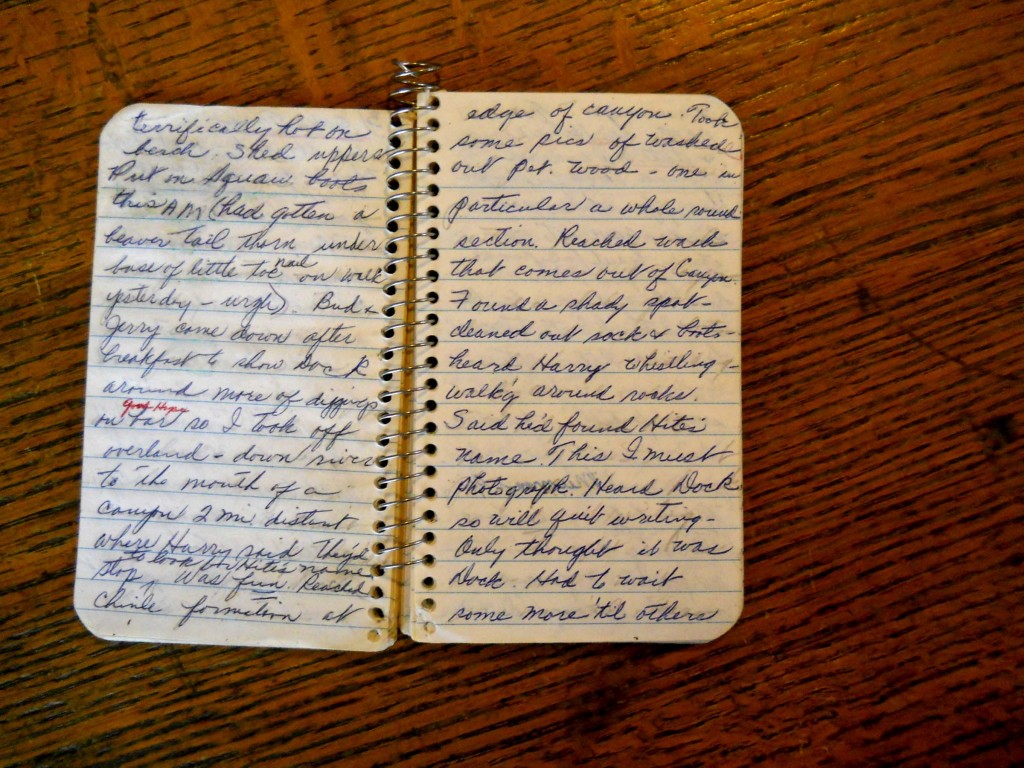 terrifically hot on
beach. Shed uppers
Put on Squaw boots
this AM (had gotten a
beaver tail thorn under
base of little toe nail on walk
yesterday - urgh). Bud &
Jerry came down after
breakfast to show Doc R
around more of diggings
Good Hope
on bar so I took off
overland - down river
to the mouth of a
canyon 2 mi distant
where Harry said they'd
to look for Hites name
stop, Was fun. Reached
Chinle formation at
edge of canyon. Took
some pics of washed
out Pet. wood - one in
particular a whole round
section. Reached wash
that comes out of Canyon.
Found a shady spot -
cleaned out sock & boots -
heard Harry whistling -
walk'g around rocks.
Said he'd found Hites
name. This I must
photograph. Heard Dock
so will quit writing -
Only thought it was
Dock. Had to wait
some more 'til others